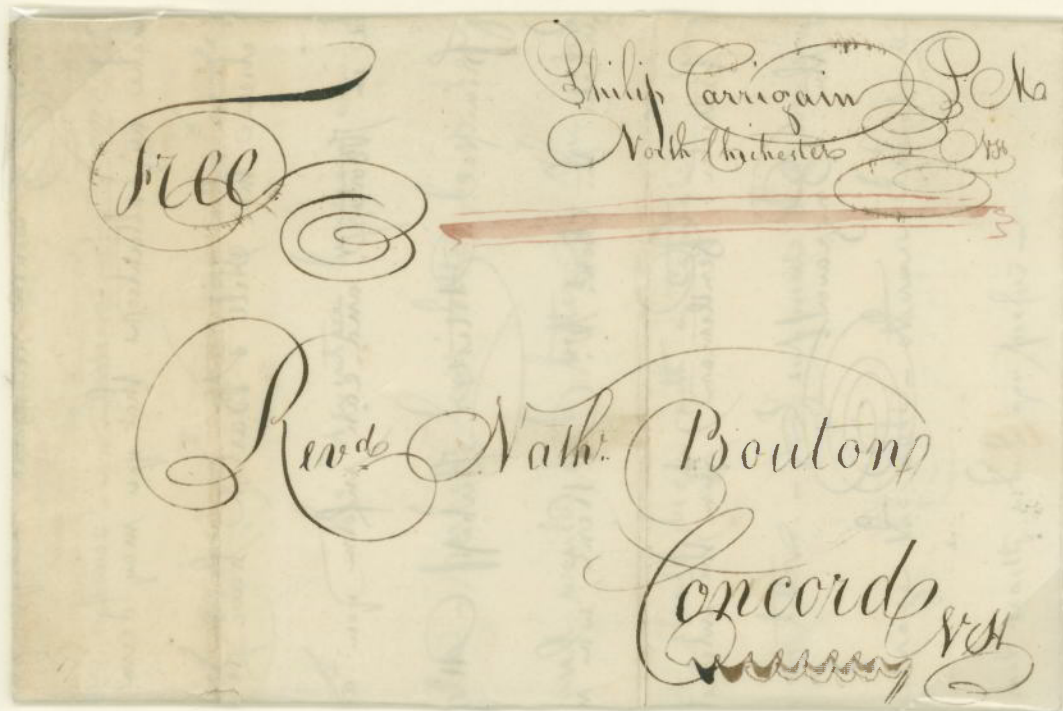 Philip Carrigain P. M
North Chichester NH
Free
Revd. Nathl. Bouton
Concord
NH